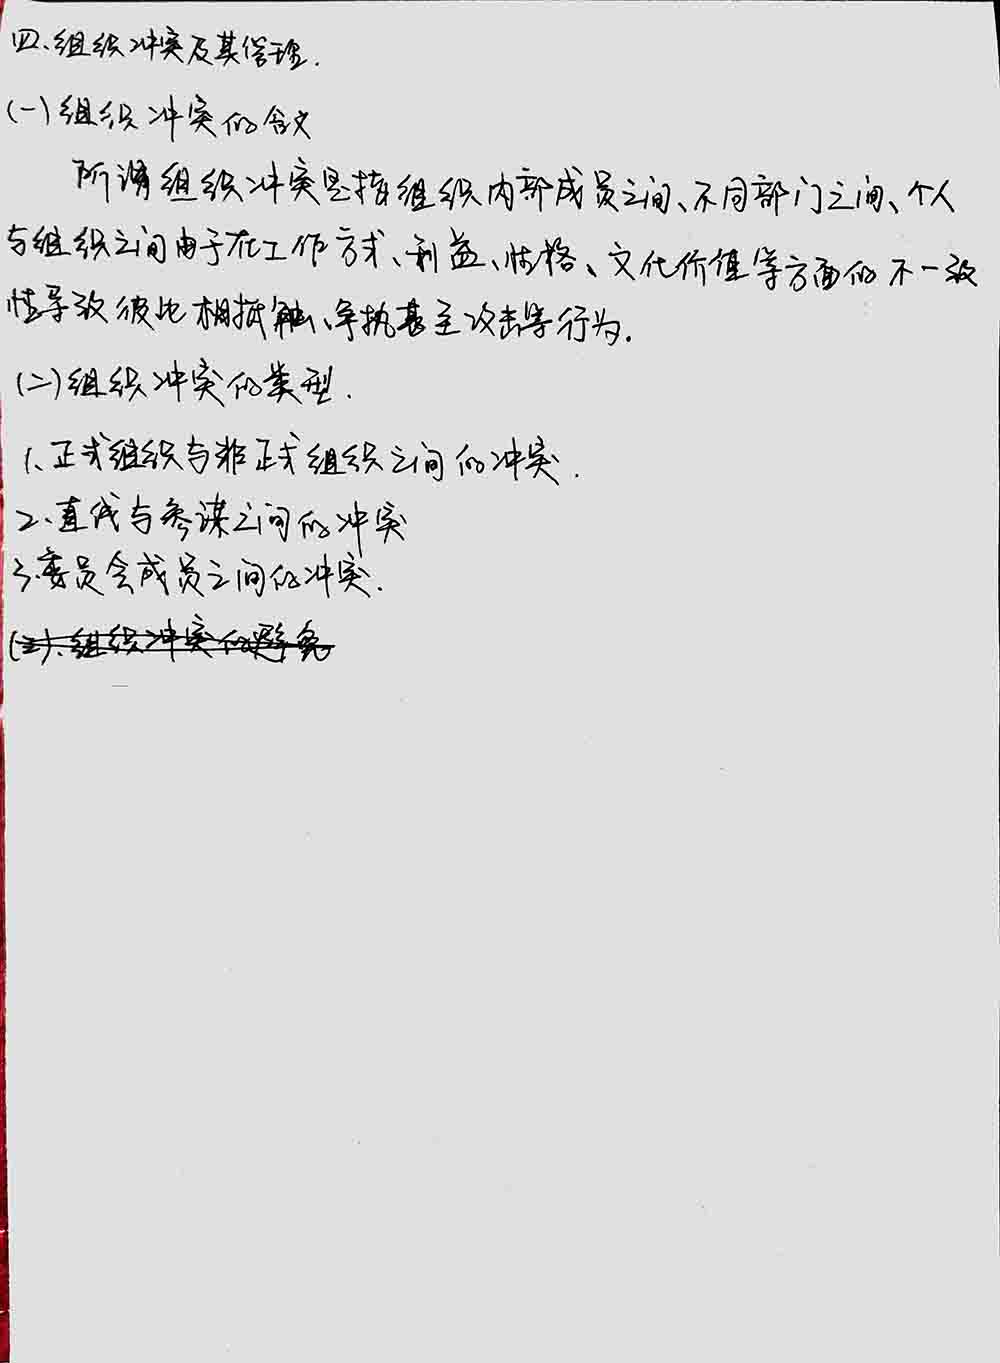 四、组织冲突及其管理.
(一)组织冲突的含义
所谓组织冲突是指组织内部成员之间、不同部门之间、个人
与组织之间由于在工作方式、利益、性格、文化价值等方面的不一致
性导致彼此相抵触、争执甚至攻击等行为.
(二)组织冲突的类型.
1、正式组织与非正式组织之间的冲突.
2、直线与参谋之间的冲突
3、委员会成员之间的冲突.
(三)、组织冲突的避免